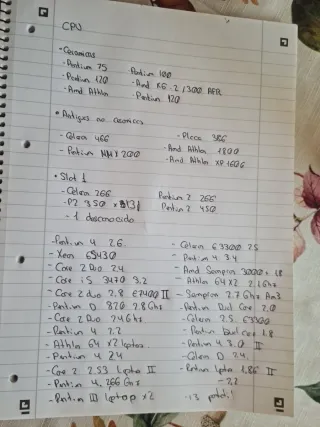 CPU
• Ceramicos
- Pentium 75 Pentium 100
- Pentium 120 - Amd K6-2 / 300 AFR
- Amd Athlon - Pentium 120
• Antiguos no ceramicos
- Celeron 466 - Placa 386
- Pentium MMX 200 - Amd Athlon 1800
- Amd Athlon XP 1600
• Slot 1
- Celeron 266 Pentium 2 266
- P2 350 Pentium 2 450
- 1 desconocido
- Pentium 4 2.6 - Celeron E3300 2.5
- Xeon E5430 - Pentium 4 3.4
- Core 2 Duo 2.4 - Amd Sempron 3000+ 1.8
- Core i5 3470 3.2 - Athlon 64 X2 2.1 Ghz
- Core 2 duo 2.8 E7400 II - Sempron 2.7 Ghz Am3
- Pentium D 820 2.8 Ghz - Pentium Dual Core 2.0
- Core 2 Duo 2.4 Ghz - Celeron 2.5 E3300
- Pentium 4 2.2 - Pentium Dual core 1.8
- Athlon 64 x2 laptop - Pentium 4 3.0 II
- Pentium 4 2.4 - Celeron D 2.4
- Core 2 2.53 laptop II - Pentium laptop 1.86 II
- Pentium 4 2.66 Ghz - 2.2
- Pentium III laptop x2 - i3